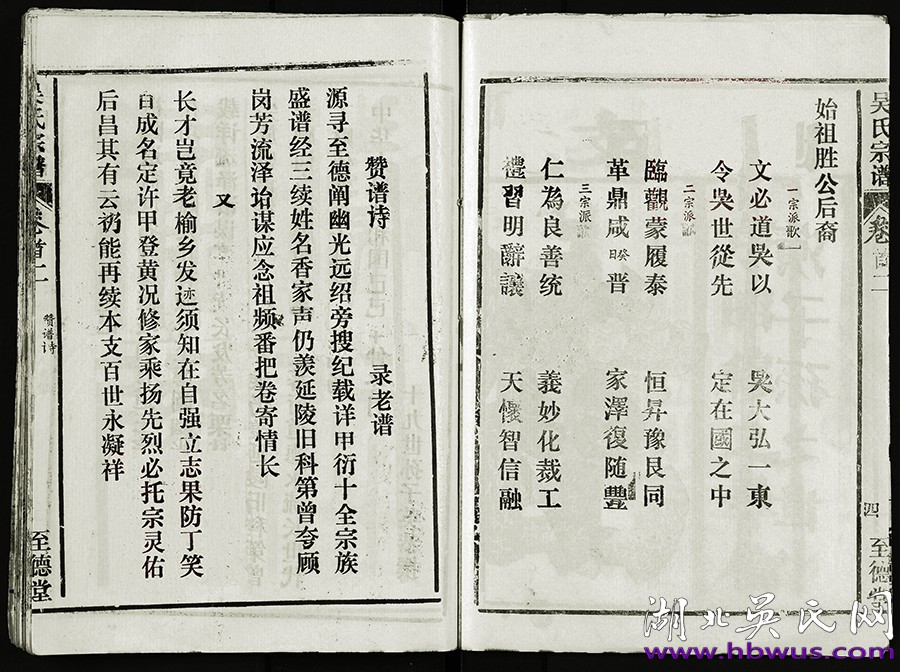 吴氏宗谱 卷首二 四 至德堂
始祖胜公后裔
一宗派歌
文必道吳以 吳大弘一東
令吳世從先 定在國之中
二宗派歌
臨觀蒙履泰 恒昇豫艮同
革鼎咸晋 癸日 家澤復随豐
三宗派
仁為良善統 義妙化裁工
禮習明辭讓 天懷智信融
赞谱诗 录老谱
源寻至德阐幽光远绍旁搜纪载详甲衍十全宗族
盛谱经三续姓名香家声仍羡延陵旧科第曾夸顾
岗芳流泽诒谋应念祖频番把卷寄情长
又
长才岂竟老榆乡发迹须知在自强立志果防丁笑
亦
白成名定许甲登黄况修家乘扬先烈必托宗灵佑
后昌其有云礽能再续本支百世永凝祥
吴氏宗谱 卷首二 赞谱诗 至德堂
湖北吳氏网
www.hbwus.com